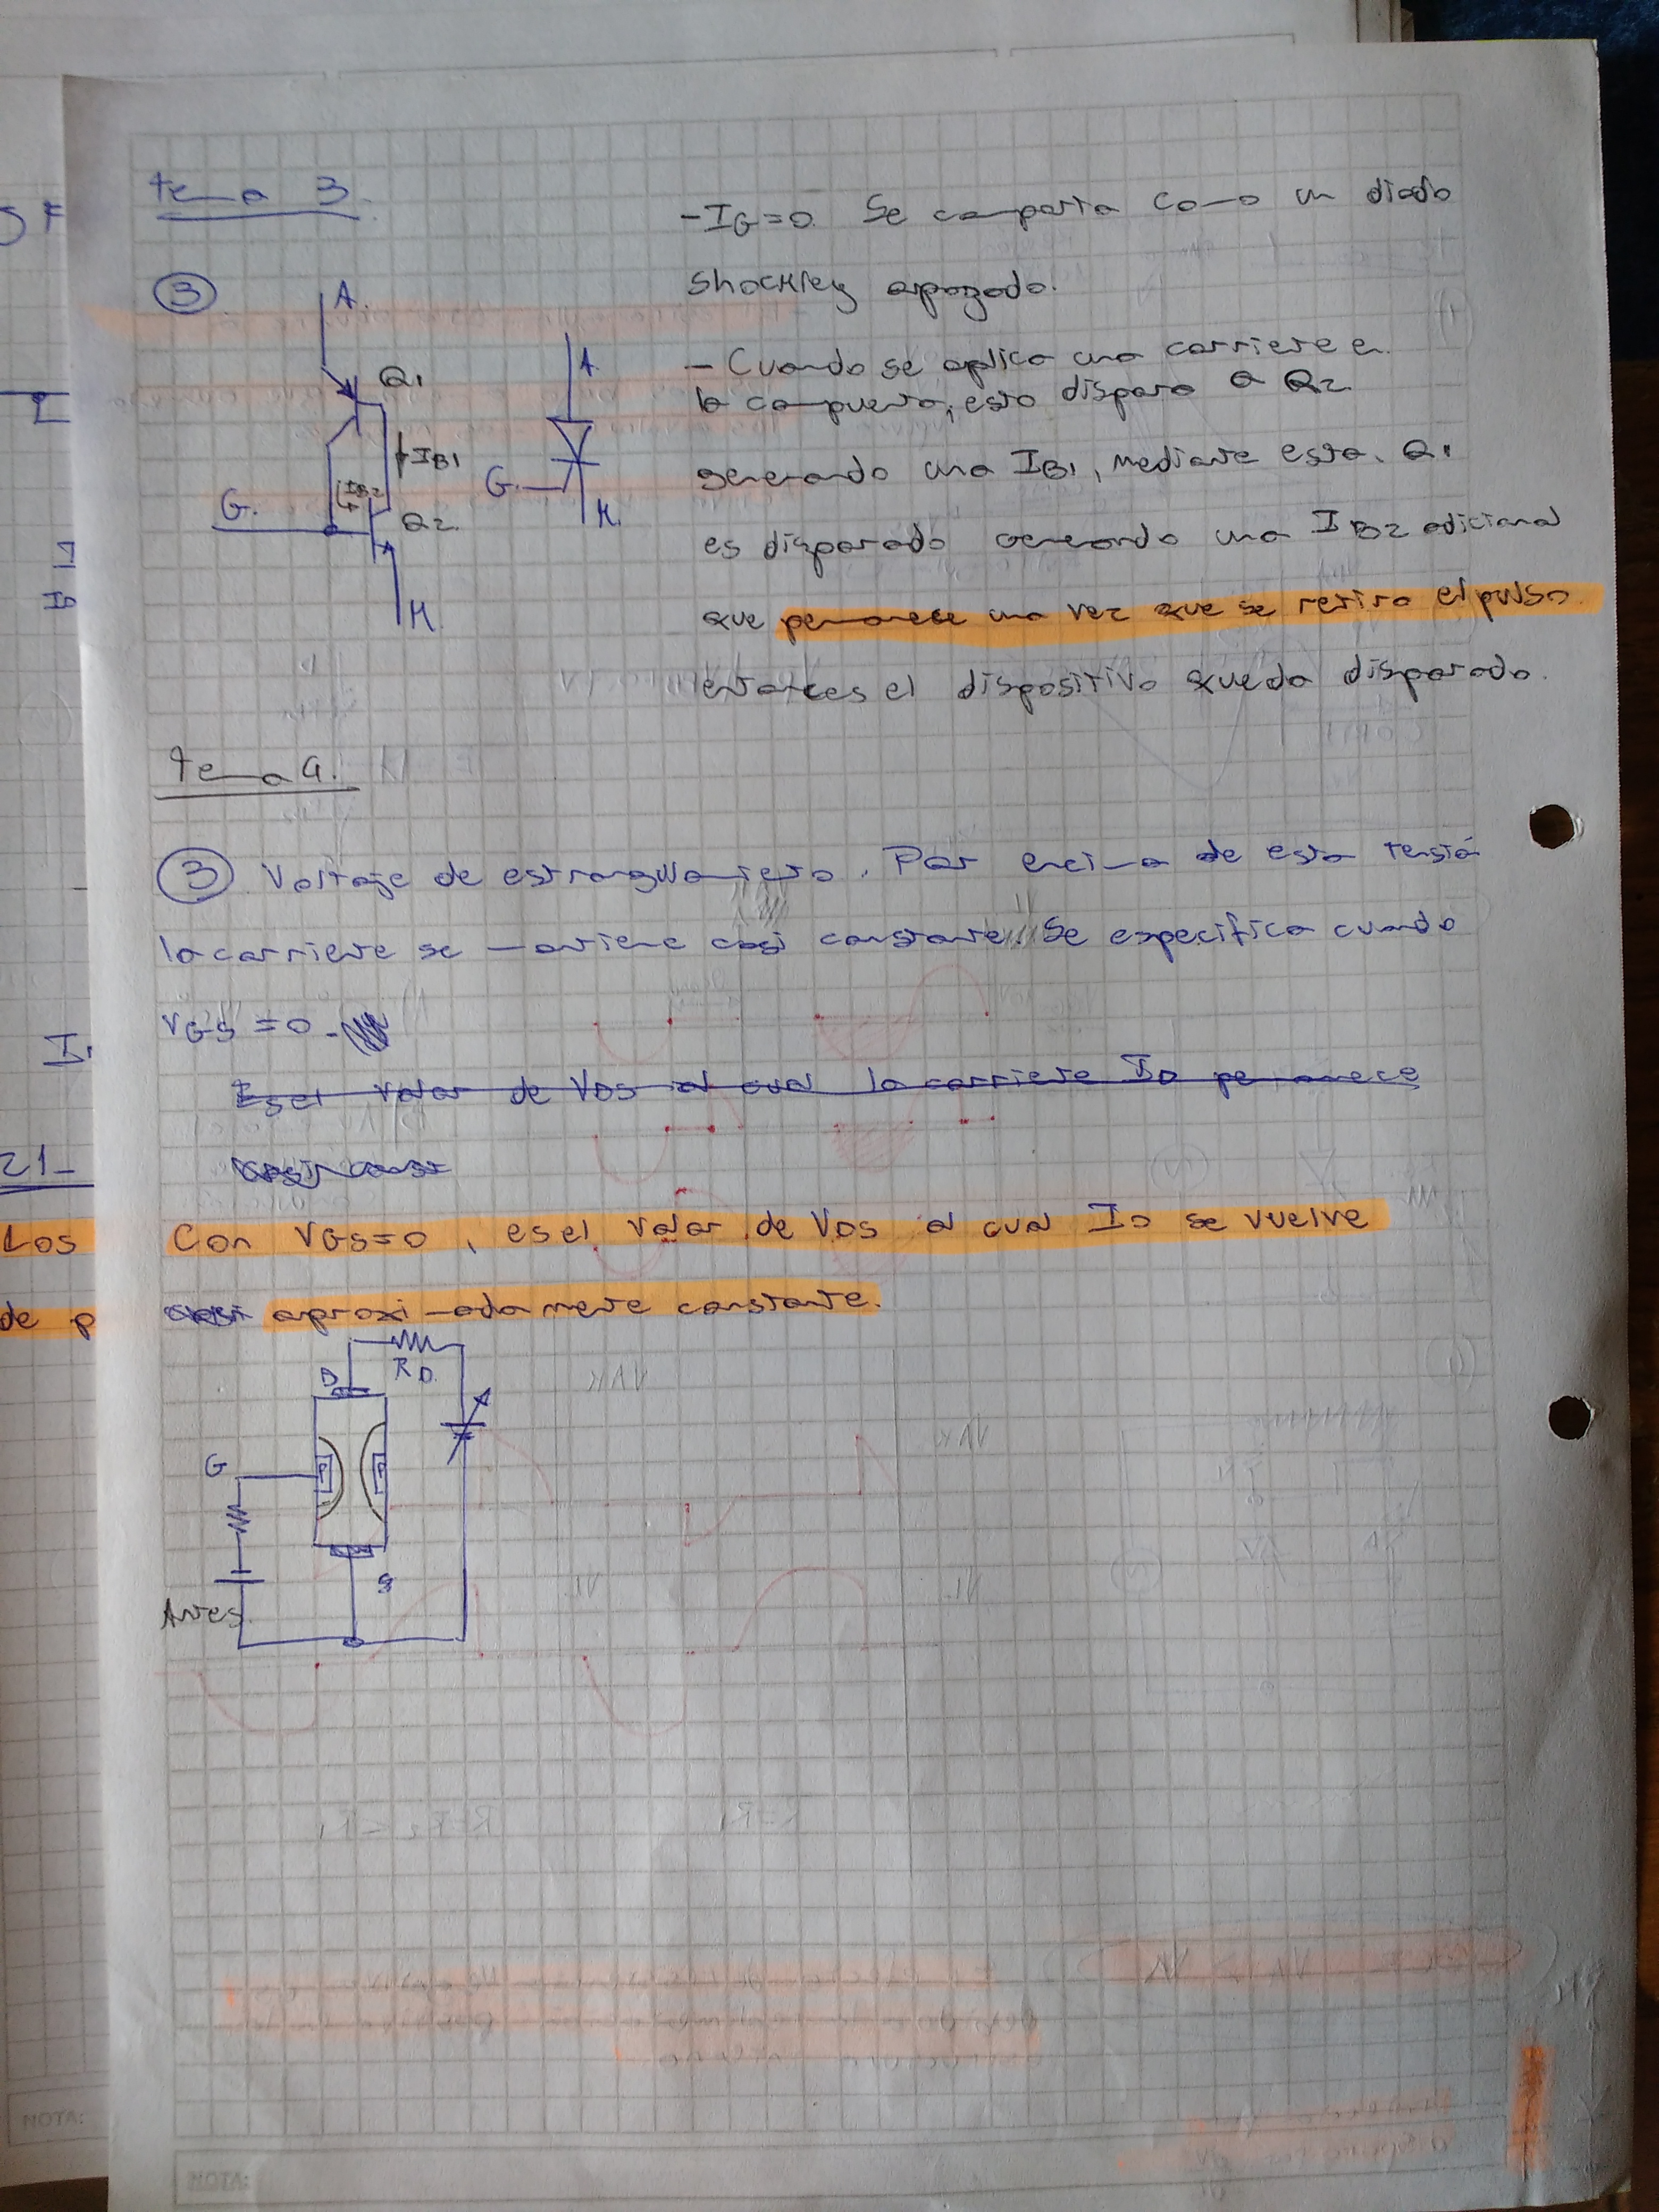 tema 3.
③
A.
Q1
IB1
IB2
G.
Q2.
K.
A
G.
K.
-IG=0. Se comporta como un diodo
Shockley apagado.
- Cuando se aplica una corriente en
la compuerta, esto dispara a Q2
generando una IB1, mediante esta, Q1
es disparado generando una IB2 adicional
que permanese una vez que se retira el pulso
entonces el dispositivo queda disparado.
tema 4.
③ Voltaje de estrangulamiento. Por encima de esta tensión
la corriente se mantiene casi constante. Se especifica cuando
VGS = 0.
Es el valor de VDS al cual la corriente ID permanece
casi const
Con VGS=0, es el valor de VDS al cual ID se vuelve
aproximadamente constante.
D
RD.
G
P
P
S
Antes
I
21-
Los
de p
NOTA:
NOTA: